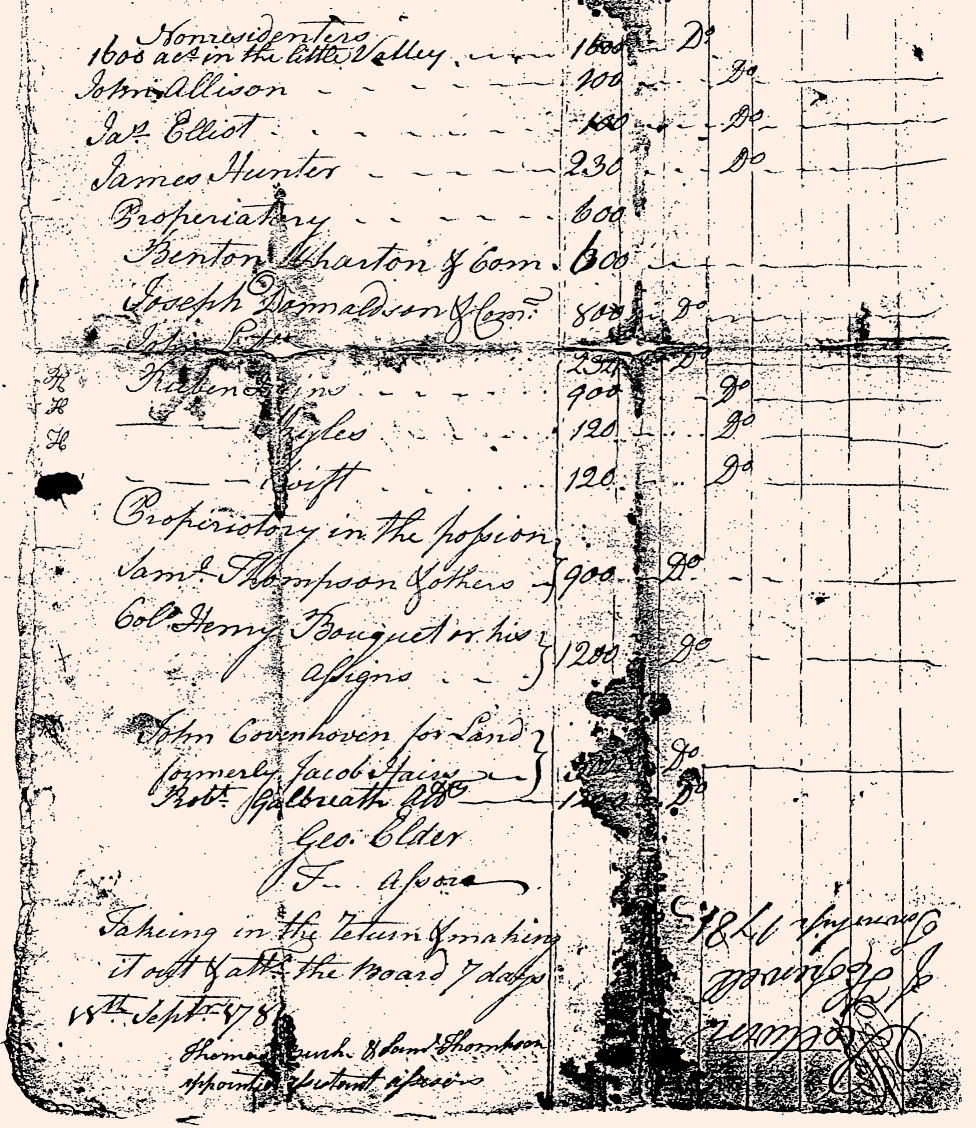 Nonresidenters
1600 acs in the little Valley 1600 Do
John Allison 200 Do
Jas. Elliot 100 Do
James Hunter 230 Do
Properiatory 600
Benton Wharton & Com. 600
Joseph Donnaldson & Comy 800 Do
John 234 Do
H Ruben 900 Do
H
H Chyles 120 Do
Swift 120 Do
Properiotory in the possion
Saml. Thompson & others 900 Do
Col. Henry Bouquet or his
Assigns 1200 Do
John Covenhoven for Land
formerly Jacob Hairs Do
Robt. Galbreath Do
Geo. Elder
T. Assor
Takeing in the Return & making
it out & attg. the Board 7 days
18th Septr. 178
Thomas & Saml. Thompson
appointed assistant assesors
Return
of Hopewell
Township 1781